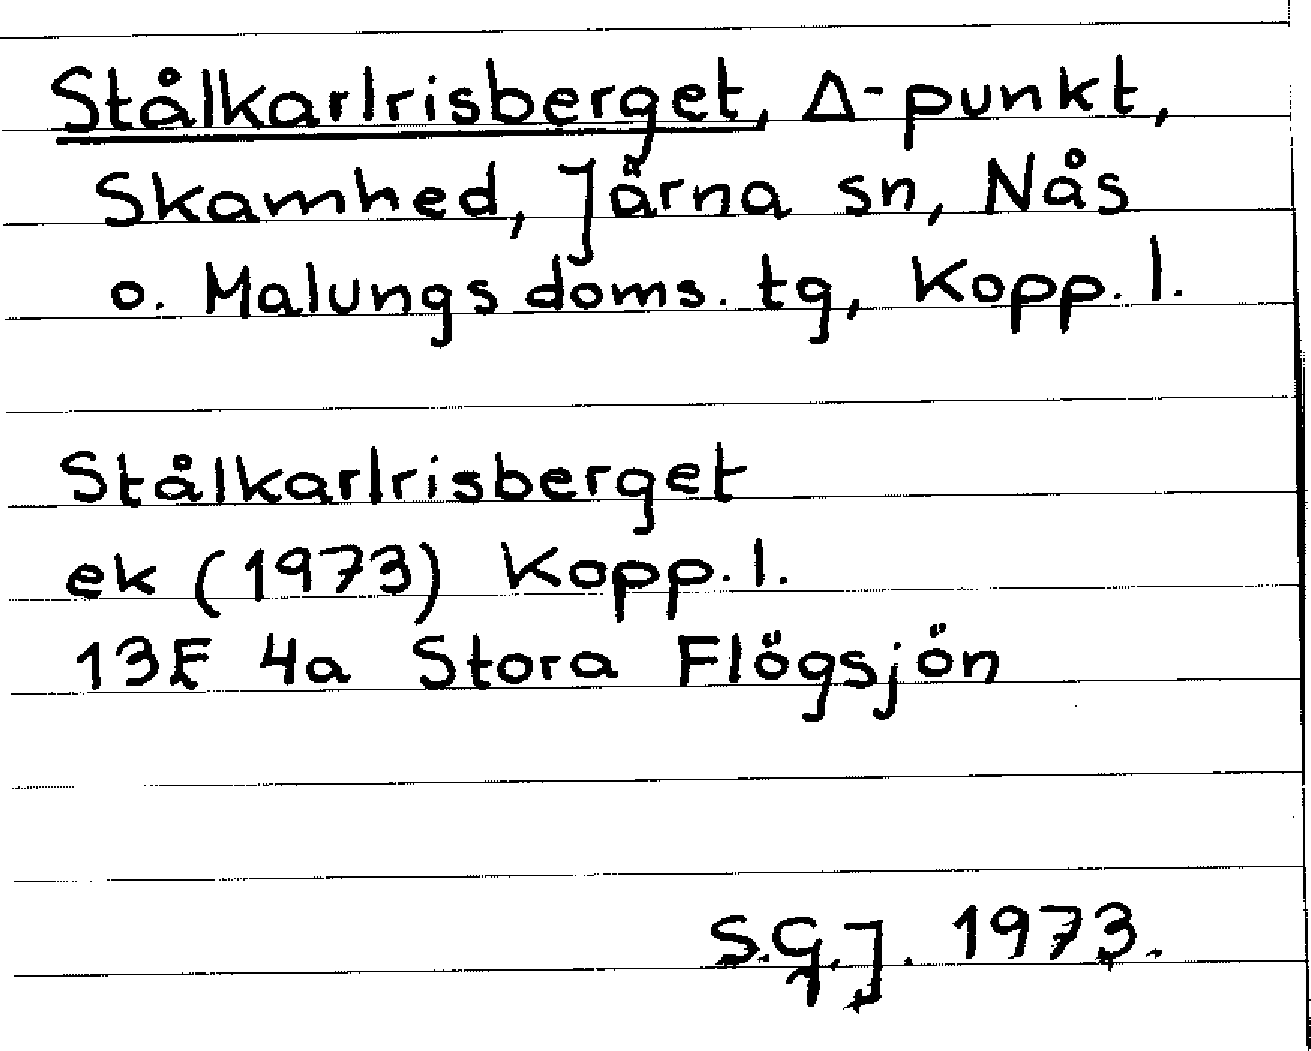 Stålkarlrisberget, Δ-punkt,
Skamhed, Järna sn, Nås
o. Malungs doms. tg, Kopp. l.
Stålkarlrisberget
ek (1973) Kopp. l.
13E 4a Stora Flögsjön
S.G.J. 1973.